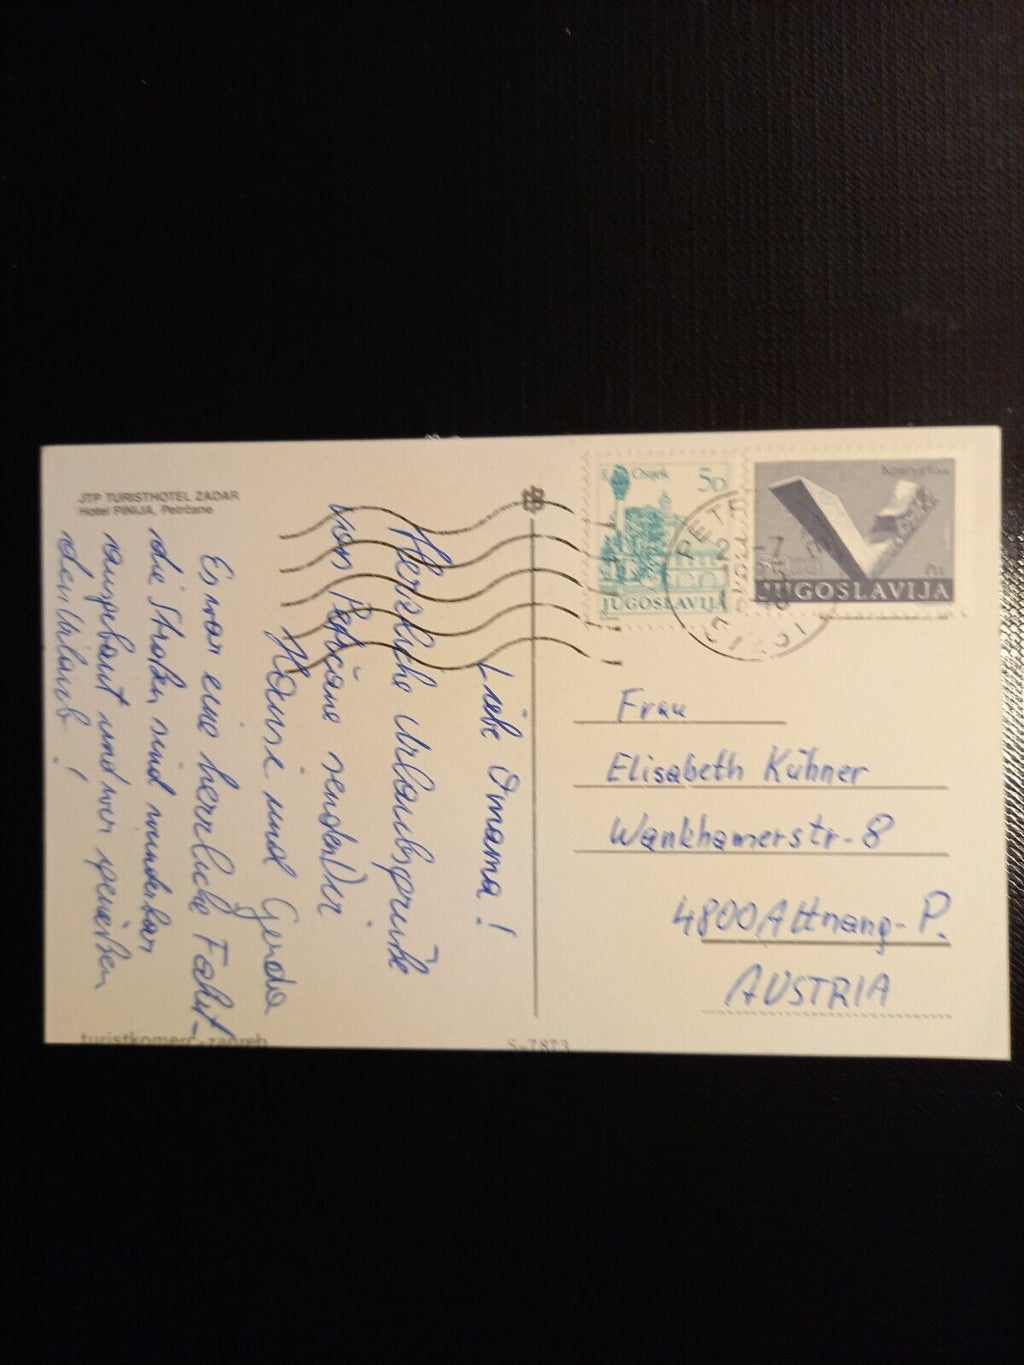 JTP TURISTHOTEL ZADAR
Hotel PINIJA, Petrčane
Liebe Omama!
Herzliche Urlaubsgrüße
von Petrčane senden Dir
Hansi und Gerda
Es war eine herrliche Fahrt -
die Straßen sind wunderbar
ausgebaut und wir genießen
den Urlaub!
turistkomerc-zagreb
S-7873
Osijek 50
JUGOSLAVIJA
JUGOSLAVIJA
Frau
Elisabeth Kühner
Wankhamerstr-8
4800 Attnang-P.
AUSTRIA